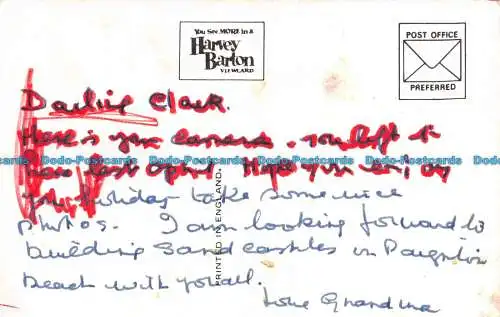 You See MORE in a
Harvey
Barton
VIEWCARD
POST OFFICE
PREFERRED
Darling Clark.
Here is your camera. You left it
here last April. Hope you enjoy
your holiday take some nice
photos. I am looking forward to
building sandcastles in Paignton
beach with you all.
Love Grandma
PRINTED IN ENGLAND
Dodo-Postcards Dodo-Postcards Dodo-Postcards Dodo-Postcards Dodo-Postcards